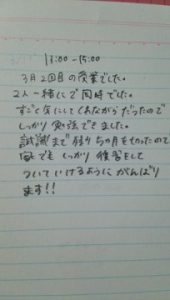 13:00 - 15:00
3月2回目の授業でした。
2人一緒にご同時でした。
すごく気にしてしながらだったので
しっかり勉強できました。
試験まで残り5カ月を切ったので
何でもしっかり練習をして
ついていけるようにがんばり
ます!!